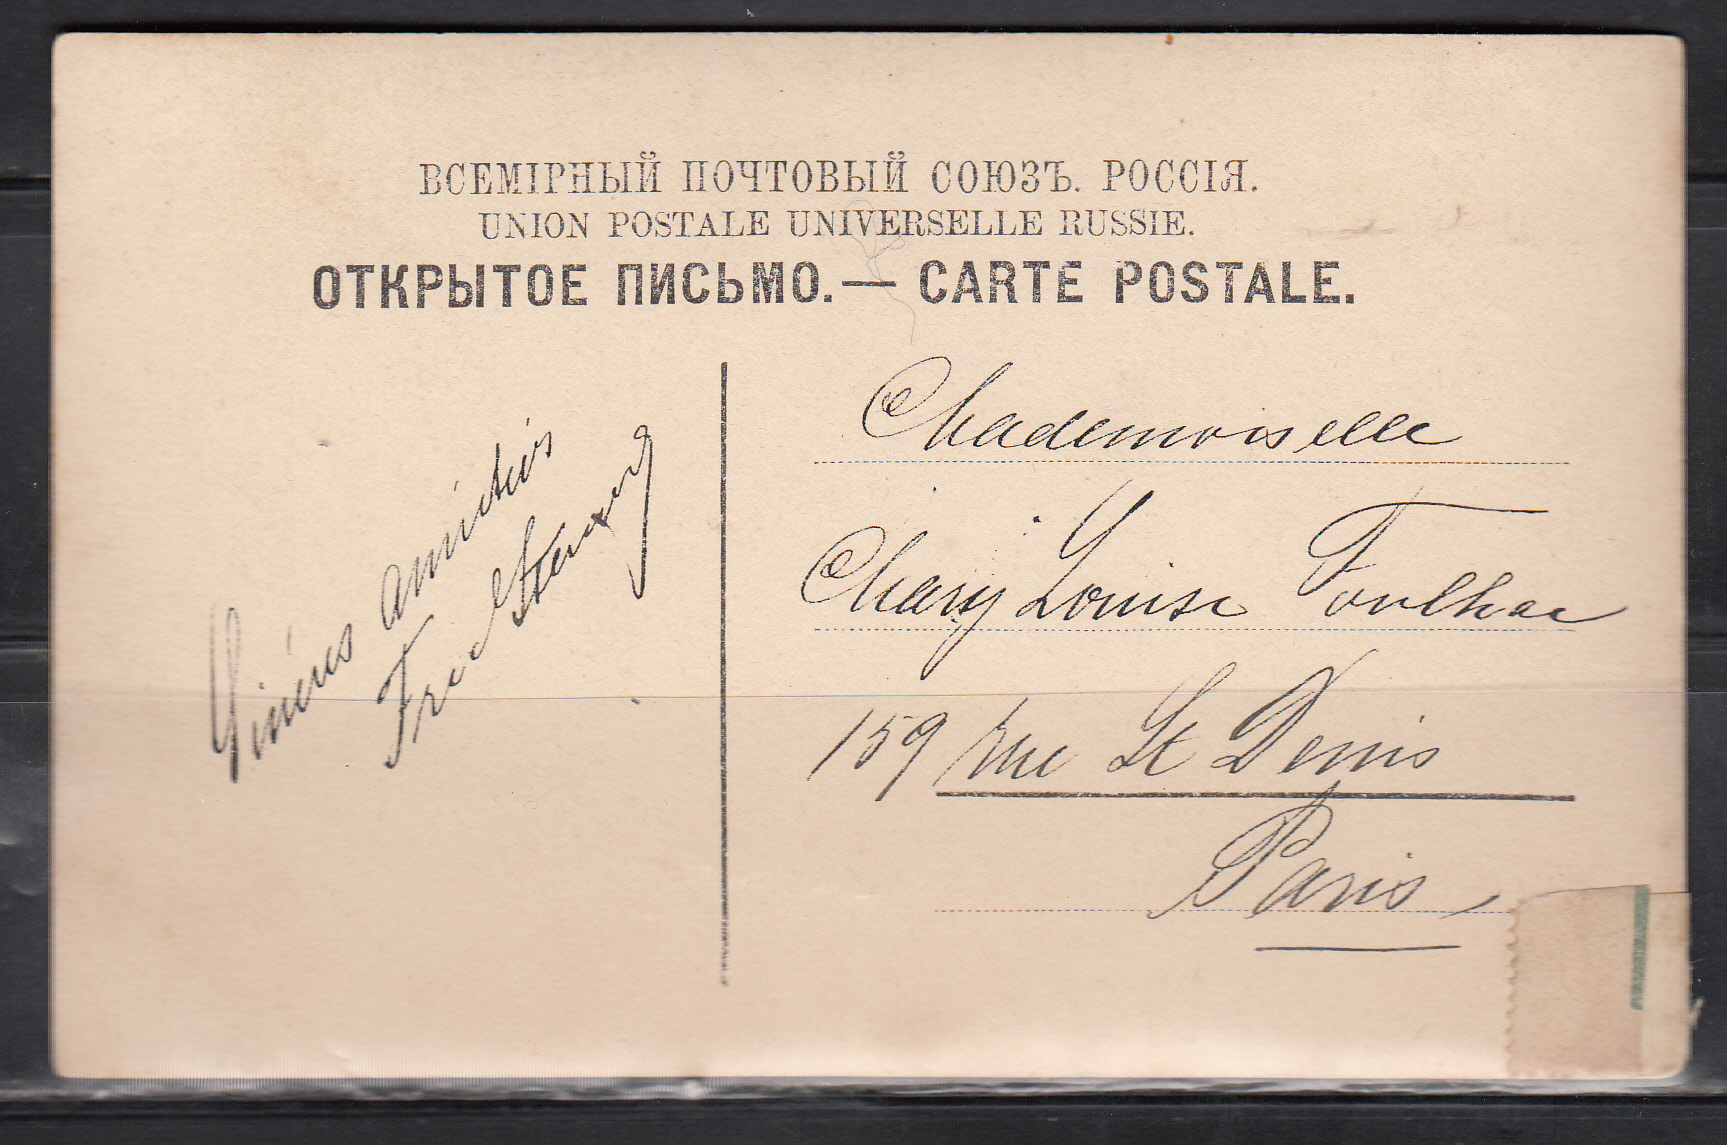 ВСЕМІРНЫЙ ПОЧТОВЫЙ СОЮЗЪ. РОССІЯ.
UNION POSTALE UNIVERSELLE RUSSIE.
ОТКРЫТОЕ ПИСЬМО.— CARTE POSTALE.
amitiés
Fred
Mademoiselle
Mary Louise Foulhac
159 rue St Denis
Paris